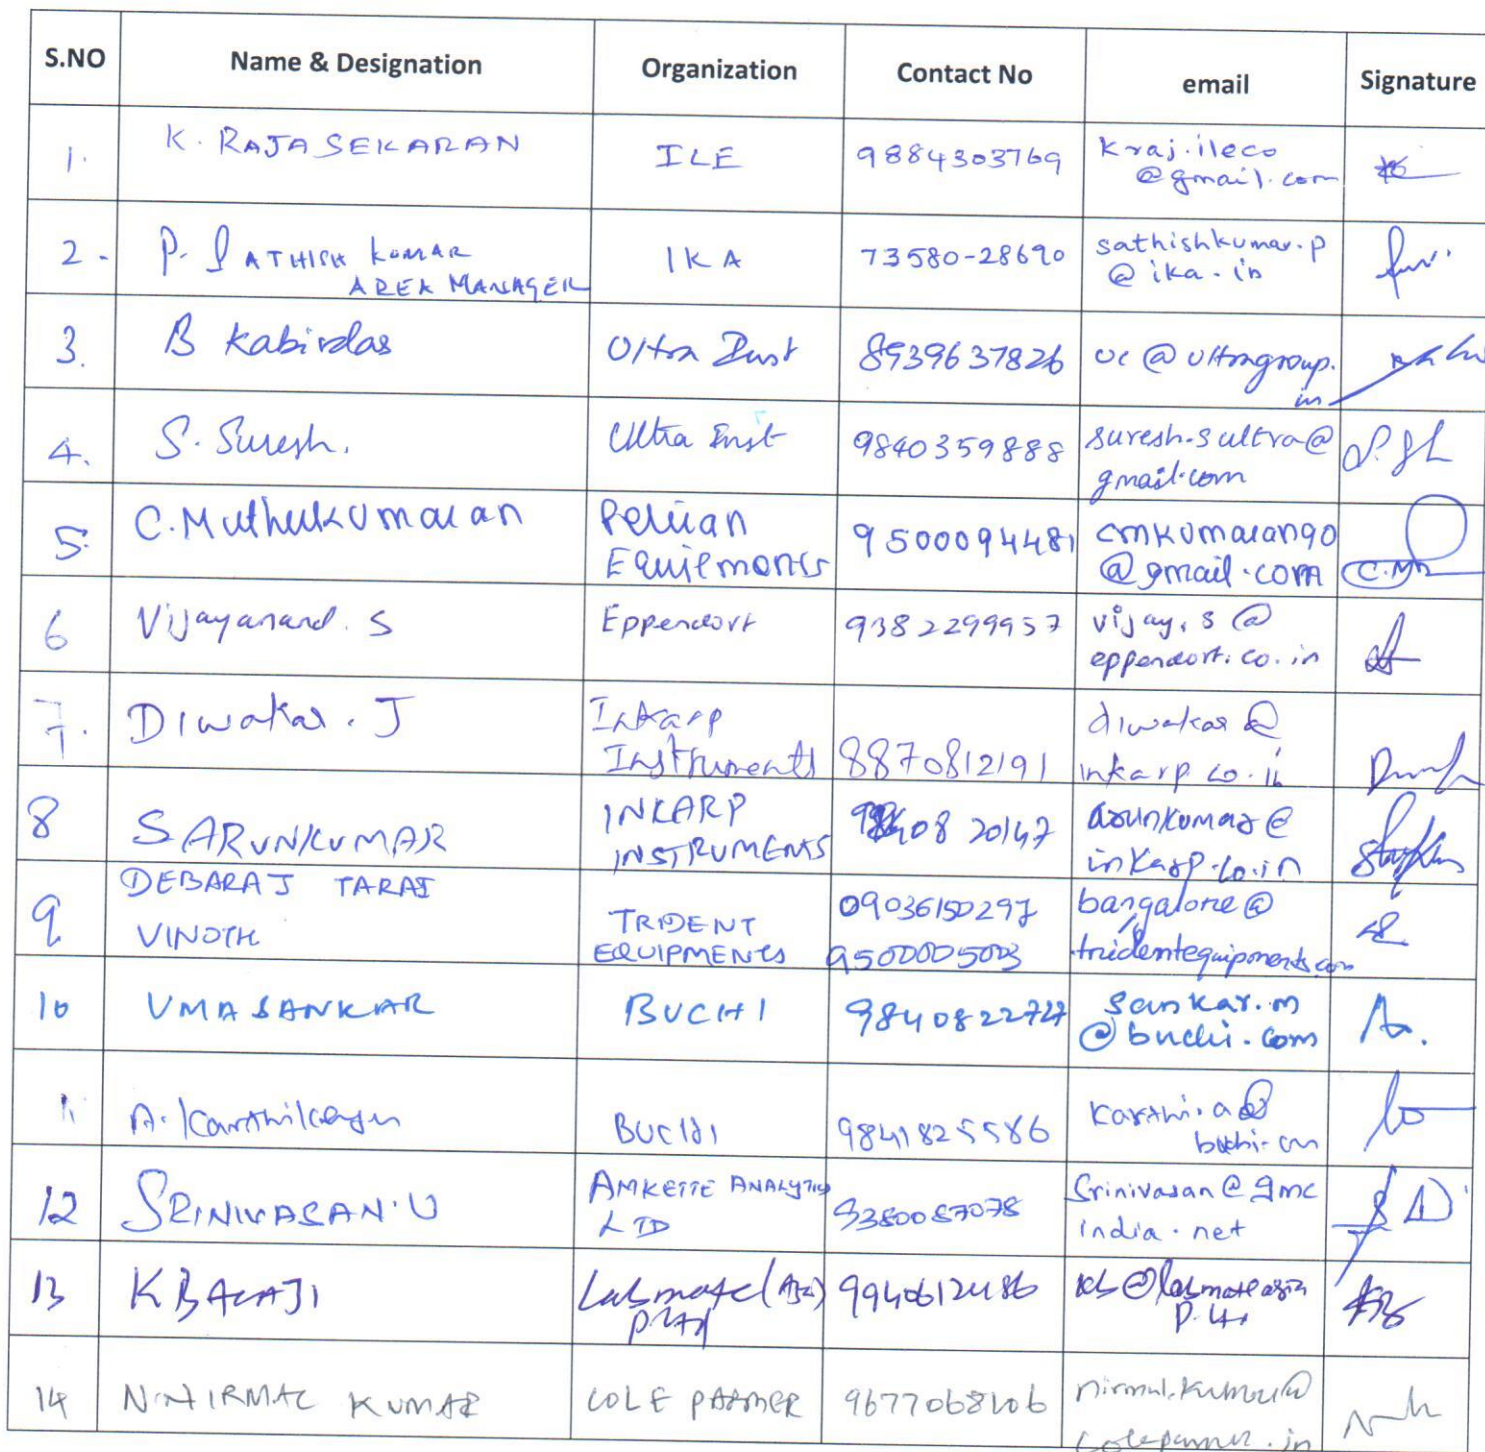 S.NO Name & Designation Organization Contact No email Signature
1. K. RAJASEKARAN ILE 9884303769 kraj.ileco
@gmail.com
2. P. SATHISH KUMAR IKA 73580-28690 sathishkumar.p
AREA MANAGER @ika.in
3. B Kabirdas Ultra Inst 8939637826 uc@ultragroup.
in
4. S. Suresh. Ultra Inst 9840359888 suresh.sultra@
gmail.com
5. C.Muthukumaran Pelican 9500094481 cmkumaran90
Equipments @gmail.com
6 Vijayanand. S Eppendorf 9382299957 vijay.s@
eppendorf.co.in
7. Diwakar. J Inkarp diwakar@
Instruments 8870812191 inkarp.co.in
8 S ARUNKUMAR INKARP 98408 20147 arunkumar@
INSTRUMENTS inkarp.co.in
9 DEBARAJ TARAI TRIDENT 09036150297 bangalore@
VINOTH EQUIPMENTS 9500005003 tridentequipments.com
10 UMASANKAR BUCHI 9840822727 sankar.m
@buchi.com
11 A. Karthikeyan BUCHI 9841825586 karthi.a@
buchi.com
12 SRINIVASAN.U AMKETTE ANALYTICS 9380087078 Srinivasan@gmc
LTD india.net
13 K BALAJI Labmate (Asia) 9940612486 kb@labmateasia
P Ltd P.Ltd
14 N.NIRMAL KUMAR COLE PARMER 9677068106 nirmal.kumar@
coleparmer.in